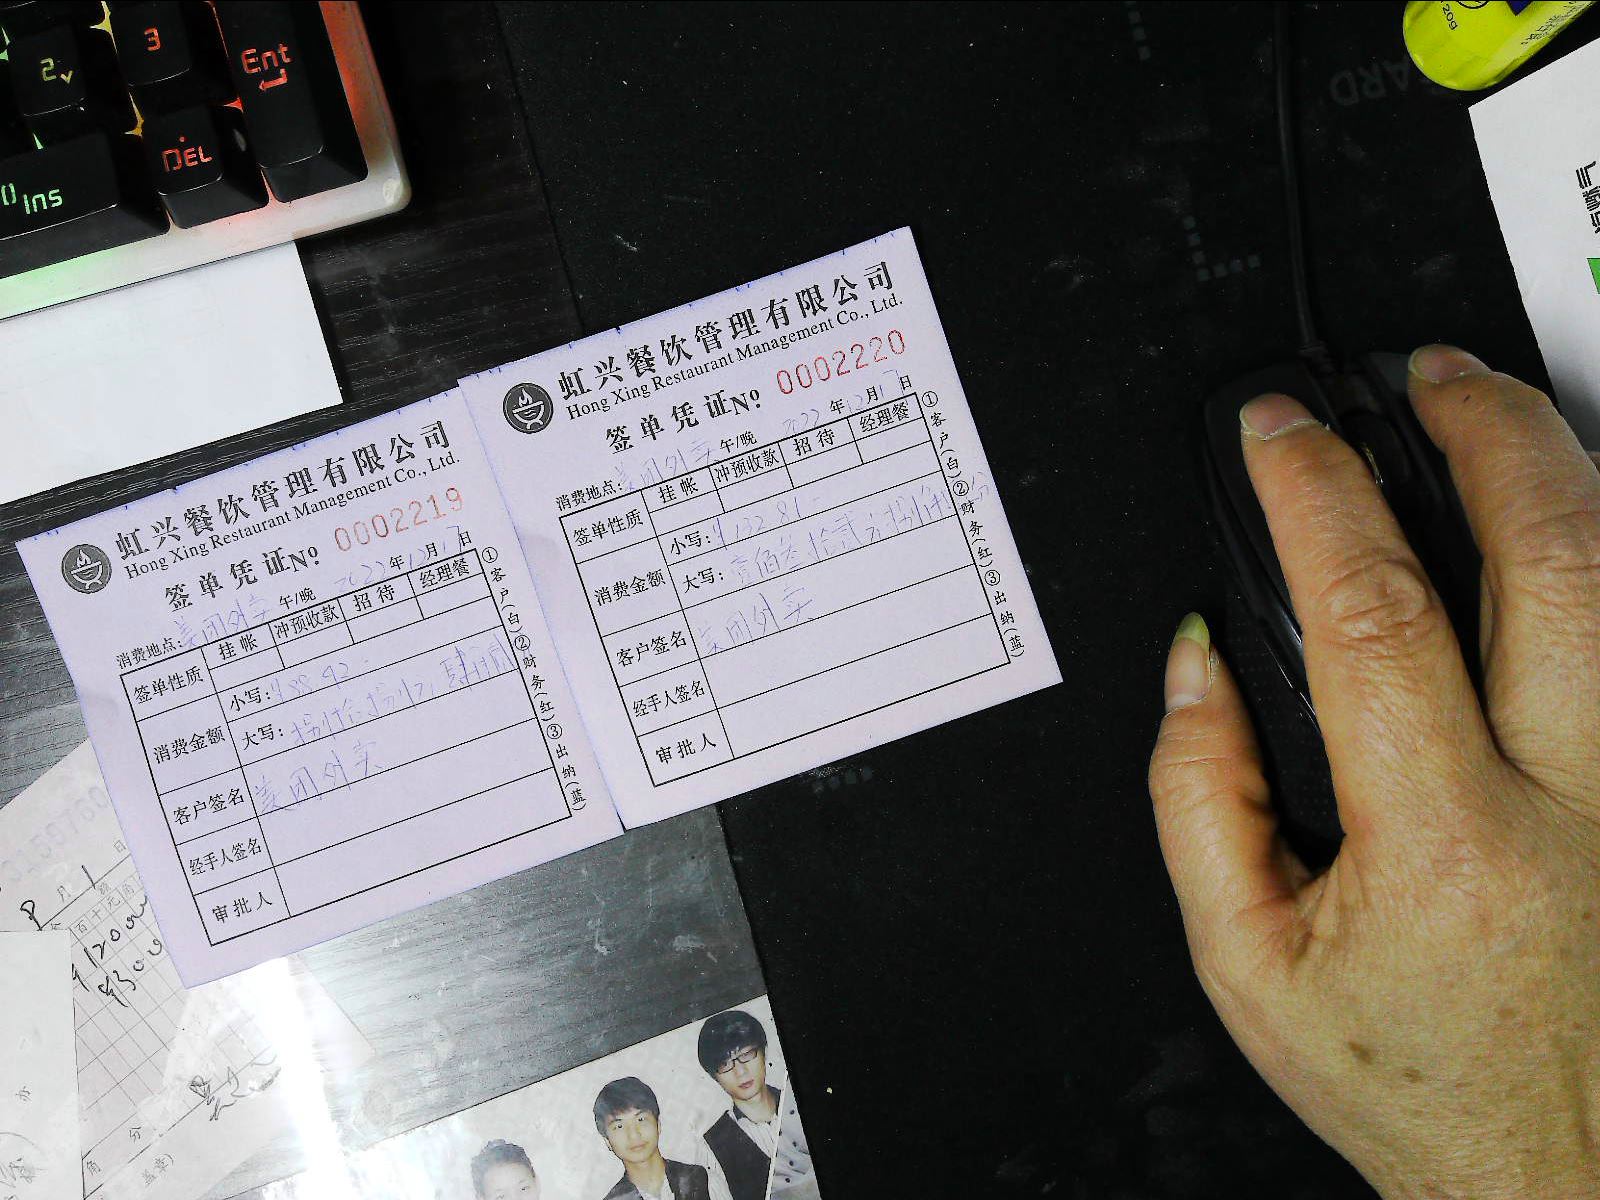 3
Ent
2
DEL
0
Ins
20g
虹兴餐饮管理有限公司
Hong Xing Restaurant Management Co., Ltd.
签单凭证№ 0002219
2022年12月17日
消费地点:美团外卖 午/晚
签单性质 挂帐 冲预收款 招待 经理餐
消费金额 小写:¥88.42
大写:捌拾捌元肆角贰
客户签名 美团外卖
经手人签名
审批人
①客户(白)②财务(红)③出纳(蓝)
虹兴餐饮管理有限公司
Hong Xing Restaurant Management Co., Ltd.
签单凭证№ 0002220
2022年12月17日
消费地点:美团外卖 午/晚
签单性质 挂帐 冲预收款 招待 经理餐
消费金额 小写:¥132.81
大写:壹佰叁拾贰元捌角 分
客户签名 美团外卖
经手人签名
审批人
①客户(白)②财务(红)③出纳(蓝)
月1日
百十元角
¥12000
¥300
角 分
盖章)
办